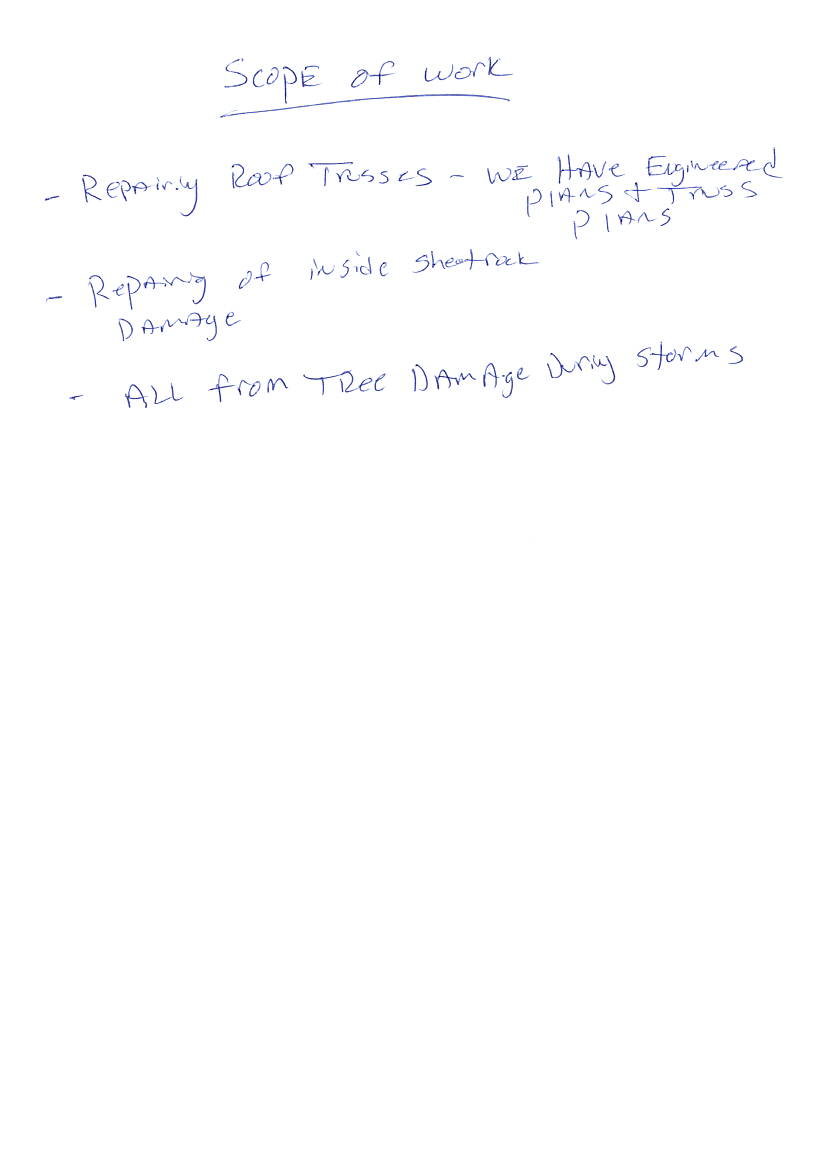 SCOPE of work
- Repairing Roof Trusses - WE HAVE Engineered
PlANS + Truss
PlANS
- Repairing of inside sheetrock
DAMAge
- ALL from TRee DAmAge During storms